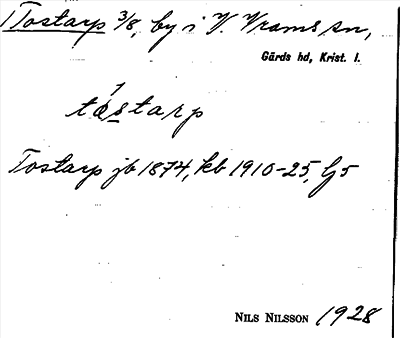 Tostarp 3/8, by i V. Vrams sn,
Gärds hd, Krist. l.
tòstarp
Tostarp jb 1874, kb 1910-25, Gs
NILS NILSSON 1928